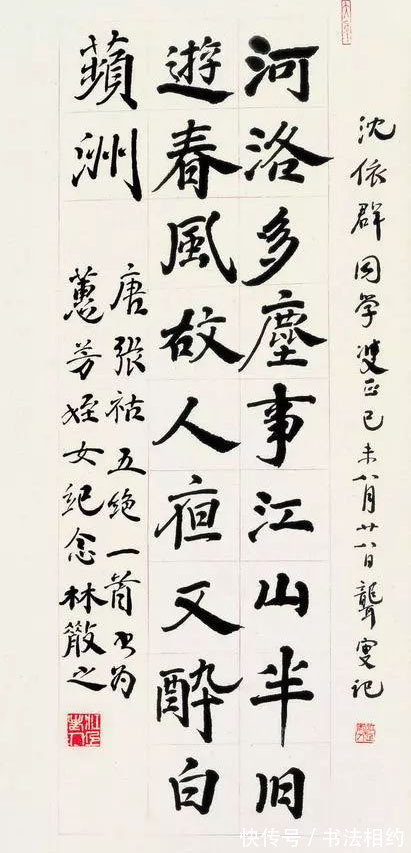 沈依群同学正己未八月廿八日聾叟记
河洛多塵事江山半旧
遊春風故人亱又醉白
蘋洲
唐張祜五绝一首书为
蕙芳姪女纪念林散之
快传号 / 书法相约